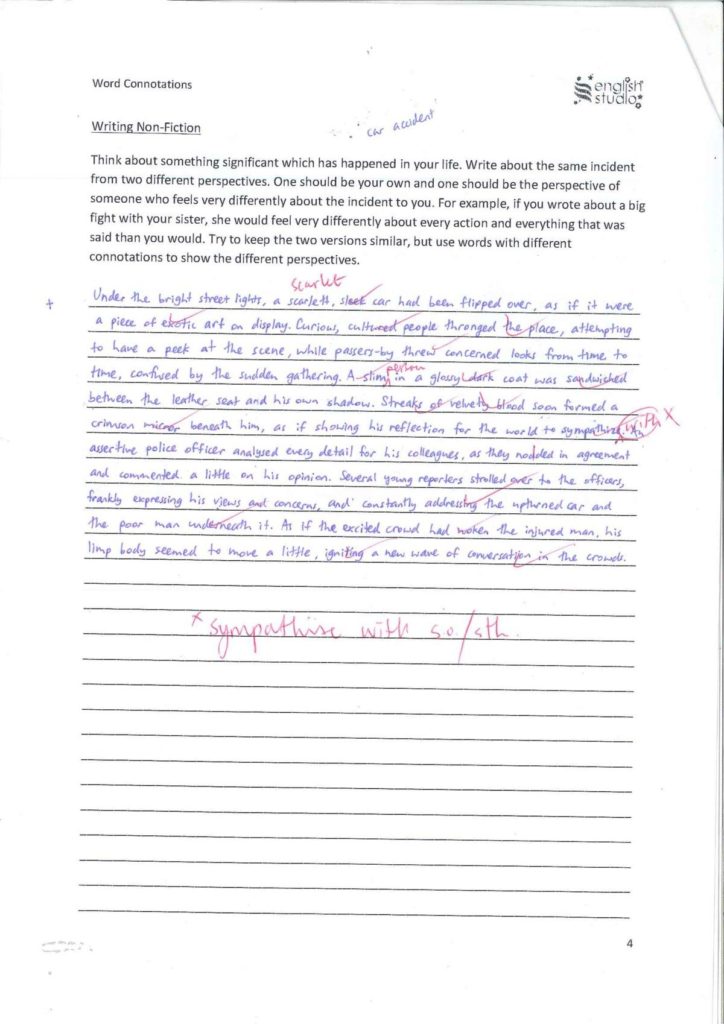 Word Connotations
english studio
Writing Non-Fiction
car accident
Think about something significant which has happened in your life. Write about the same incident
from two different perspectives. One should be your own and one should be the perspective of
someone who feels very differently about the incident to you. For example, if you wrote about a big
fight with your sister, she would feel very differently about every action and everything that was
said than you would. Try to keep the two versions similar, but use words with different
connotations to show the different perspectives.
scarlet
+ Under the bright street lights, a scarlett, sleek car had been flipped over, as if it were
a piece of exotic art on display. Curious, cultured people thronged the place, attempting
to have a peek at the scene, while passers-by threw concerned looks from time to
person
time, confused by the sudden gathering. A slim in a glossy dark coat was sandwiched
between the leather seat and his own shadow. Streaks of velvety blood soon formed a
crimson mirror beneath him, as if showing his reflection for the world to sympathize. with x
assertive police officer analysed every detail for his colleagues, as they nodded in agreement
and commented a little on his opinion. Several young reporters strolled over to the officers,
frankly expressing his views and concerns, and constantly addressing the upturned car and
the poor man underneath it. As if the excited crowd had woken the injured man, his
limp body seemed to move a little, igniting a new wave of conversation in the crowds.
x sympathise with s.o/sth.
4